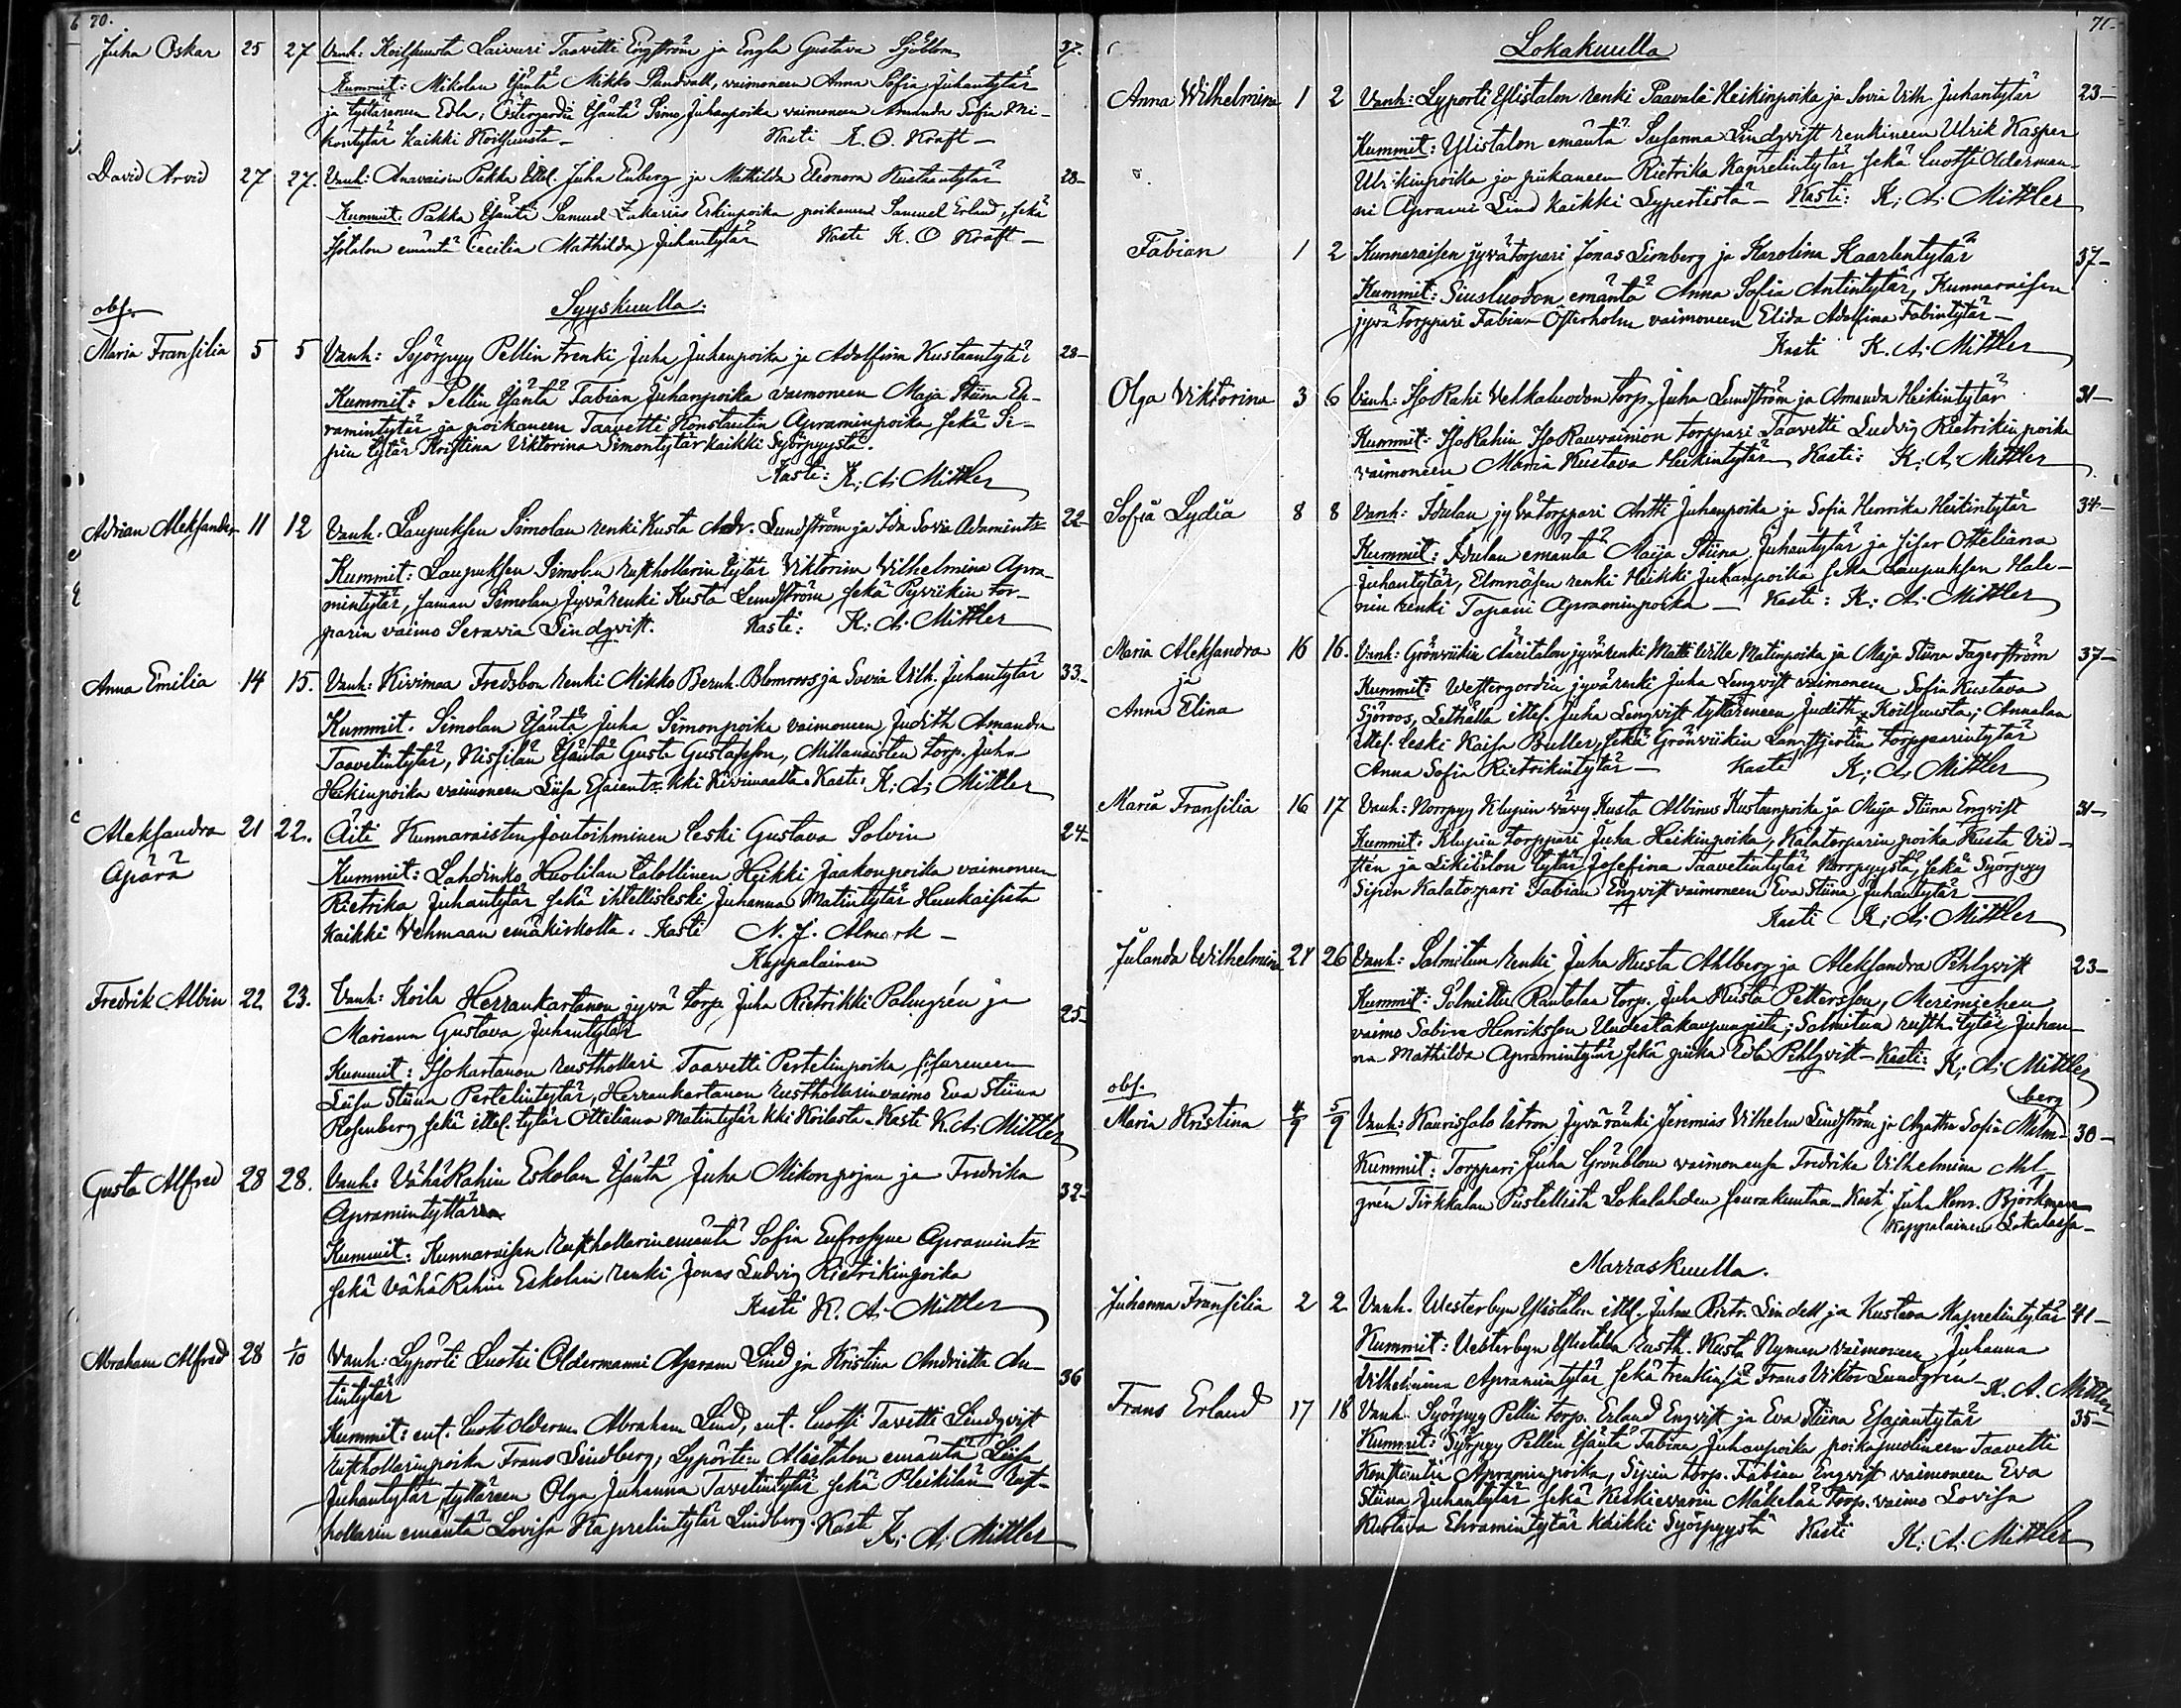 70.
Juha Oskar 25 27 Vanh: Koilhuusta Laivuri Taavetti Engström ja Engla Gustava Sjöblom 37.
Kummit: Mikolan Isäntä Mikko Sandvall, vaimoneen Anna Sofia Juhantytär
ja tyttäreneen Edla, Östergordin Isäntä Simo Juhanpoika vaimoneen Amanda Sofia Mi-
kontytär kaikki Koilhuusta - Kasti K. O. Kraft -
David Arvid 27 27. Vanh: Anavaisin Pakka Ittel. Juha Enberg ja Mathilda Eleonora Kustaantytär 28-
Kummit: Pakka Isäntä Samuel Zakarias Erkinpoika poikaneen Samuel Erland, sekä
Isotalon emäntä Cecilia Mathilda Juhantytär Kasti K. O Kraft -
Syyskuulla.
obs.
Maria Fransilia 5 5 Vanh: Syörpyy Pellin trenki Juha Juhanpoika ja Adolfina Kustaantytär 28-
Kummit: Pellin Isäntä Fabian Juhanpoika vaimoneen Maja Stiina Eh-
ramintytär ja poikaneen Taavetti Konstantin Apraminpoika sekä Si-
pin tytär Kristina Viktorina Simontytär kaikki Syörpyystä.
Kasti: K. A. Mittler
Adrian Aleksander 11 12 Vanh: Laupuksen Simolan renki Kusta Andr. Lundström ja Ida Sovia Adamintr 22-
Kummit: Laupuksen Simolan Rusthollarin tytär Viktorina Wilhelmina Apra-
mintytär, saman Simolan Jyvärenki Kusta Lundström sekä Pyviikin tor-
parin vaimo Serawia Lindqvist. Kasti: K. A. Mittler
Anna Emilia 14 15. Vanh: Kivimaa Fredsbon renki Mikko Bernh. Blomroos ja Sovia Vilh. Juhantytär 33-
Kummit. Simolan Isäntä Juha Simonpoika vaimoneen Judith Amanda
Taavetintytär, Nissilän Isäntä Gusta Gustafsson, Millanaisten torp. Juha
Heikinpoika vaimoneen Liisa Esaientr. kki Kivimaalta. Kasti: K. A. Mittler
Aleksandra 21 22. Äiti Kunnaraisten joutoihminen leski Gustava Solvin 24-
Äpärä Kummit: Lahdinko Huolilan talollinen Heikki Jaakonpoika vaimoneen
Rietrika Juhantytär sekä ihtellisleski Juhanna Matintytär Huukaisista
kaikki Vehmaan emäkirkolta. Kasti N. J. Almark -
Kappalainen
Fredrik Albin 22 23. Vanh: Koila Herrankartanon jyvä torp Juha Rietrikki Palmgrén ja 25-
Mariana Gustava Juhantytär
Kummit: Isokartanon rusthollari Taavetti Pertelinpoika sisareneen
Liisa Stiina Pertelintytär, Herrankartanon rusthollarin vaimo Eva Stiina
Rosenberg sekä ittel. tytär Otteliana Matintytär kki Koilasta. Kasti K. A. Mittler
Gusta Alfred 28 28. Vanh: VähäRahin Eskolan Isäntä Juha Mikonpojan ja Fredrika 32-
Apramintyttären
Kummit: Kunnaraisen rusthollarin emäntä Sofia Eufrosyne Apramintr
sekä VähäRahin Eskolan renki Jonas Ludvig Rietrikinpoika
Kasti K. A. Mittler
Abraham Alfred 28 1/10 Vanh: Lyporti Luotsi Oldermanni Apram Lind ja Kristina Andrietta An- 36
tintytär
Kummit: ent. luots olderm Abraham Lind, ent. luotsi Tavetti Lindqvist
rusthollarinpoika Frans Lindberg, Lypörtin Alistalon emäntä Liisa
Juhantytär, tyttäreen Olga Juhanna Tavetintytär sekä Pleikilän rust-
hollarin emäntä Lovisa Kaprelintytär Lindberg. Kasti K. A. Mittler
71-
Lokakuulla
Anna Wilhelmina 1 2 Vanh: Lyporti Ylistalon renki Paavali Heikinpoika ja Sovia Vilh. Juhantytär 23-
Kummit: Ylistalon emäntä Susanna Lindqvist renkineen Ulrik Kasper
Ulrikinpoika ja piikaneen Rietrika Kaprelintytär sekä luotsi Olderman-
ni Aprami Lind kaikki Lypertistä - Kasti: K. A. Mittler
Fabian 1 2 Kunnaraisen jyvätorpari Jonas Limberg ja Karolina Kaarlentytär 37-
Kummit: Siusluodon emäntä Anna Sofia Antintytär, Kunnaraisen
jyvätorppari Fabian Österholm vaimoneen Elida Adolfina Fabintytär -
Kasti K. A. Mittler
Olga Viktorina 3 6 Vanh: IsoRahi Vehkaluodon torp. Juha Lundström ja Amanda Heikintytär 31-
Kummit: IsoRahin IsoRauvainion torppari Taavetti Ludvig Rietrikinpoika
vaimoneen Maria Kustava Heikintytär Kasti: K. A. Mittler
Sofia Lydia 8 8 Vanh: Idulan jyvätorppari Antti Juhanpoika ja Sofia Henrika Heikintytär 34-
Kummit: Idulan emäntä Maija Stiina Juhantytär ja sisar Otteliana
Juhantytär, Elmnäsen renki Heikki Juhanpoika sekä Laupuksen Hale-
nin renki Tapani Apraminpoika - Kasti: K. A. Mittler
Maria Aleksandra 16 16. Vanh: Grönviikin Väritalon jyvärenki Matti Wille Matinpoika ja Maja Stiina Fagerström 37-
ja Kummit: Westergordin jyvärenki Juha Lengvist vaimoneen Sofia Kustava
Anna Elina Sjöroos, Lethälla ittel. Juha Lengvist tyttäreneen Judith Koilhuusta; Annalan
ittel. leski Kaisa Buller, sekä Grönviikin Lanstjerdin torpparintytär
Anna Sofia Rietrikintytär - Kasti K. A. Mittler
Maria Fransilia 16 17 Vanh: Norrpyy Klupin vävy Kusta Albinus Kustaanpoika ja Maja Stiina Engvist 31-
Kummit: Klupin torppari Juha Heikinpoika, Kalatorparin poika Kusta Vid-
sten ja Likiditon tytär Josefina Taavetintytär Norrpyystä, sekä Syörpyy
Sipin Kalatorpari Fabian Engvist vaimoneen Eva Stiina Juhantytär
Kasti K. A. Mittler
Julanda Wilhelmina 24 26 Vanh: Salmitun renki Juha Kusta Ahlberg ja Aleksandra Pihlqvist 23-
Kummit: Salmittu Rantalan torp. Juha Kusta Pettersson, Merimiehen
vaimo Sabina Henriksson Uudestakaupungista; Salmitun rusth. tytär Juhan-
na Mathilda Apramintytär sekä piika Eva Pihlqvist - Kasti: K. A. Mittler
obs.
Maria Kristina 4/9 5/9 Vanh: Kaurissalo Utron Jyväränki Jeremias Vilhelm Lindström ja Agatha Sofia Malm- 30-
berg
Kummit: Torppari Juha Grönblom vaimonensa Fredrika Vilhelmina Ahl-
grén Tirkkalan Pustellista Lokalahden seurakuntaa - Kasti Juha Henr. Björkman
Kappalainen Lokalassa -
Marraskuulla.
Juhanna Fransilia 2 2 Vanh. Westerbyn Ylistalon ittel. Juha Rietr. Lindell ja Kustava Kaprelintytär 41-
Kummit: Uesterbyn Ylistalon rusth. Kusta Nyman vaimoneen Juhanna
Vilhelmina Apramintytär sekä trenkinsä Frans Viktor Lundgrén - K. A. Mittler
Frans Erland 17 18 Vanh. Syörpyy Pellin torp. Erland Engvist ja Eva Stiina Esajantytär 35-
Kummit: Syörpyy Pellin Isäntä Fabian Juhanpoika poikapuolineen Taavetti
Konstantin Apraminpoika, Sipin torp. Fabian Engvist vaimoneen Eva
Stiina Juhantytär sekä Keskievarin Mäkelän torp. vaimo Lovisa
Kustava Ehramintytär kaikki Syörpyystä Kasti K. A. Mittler